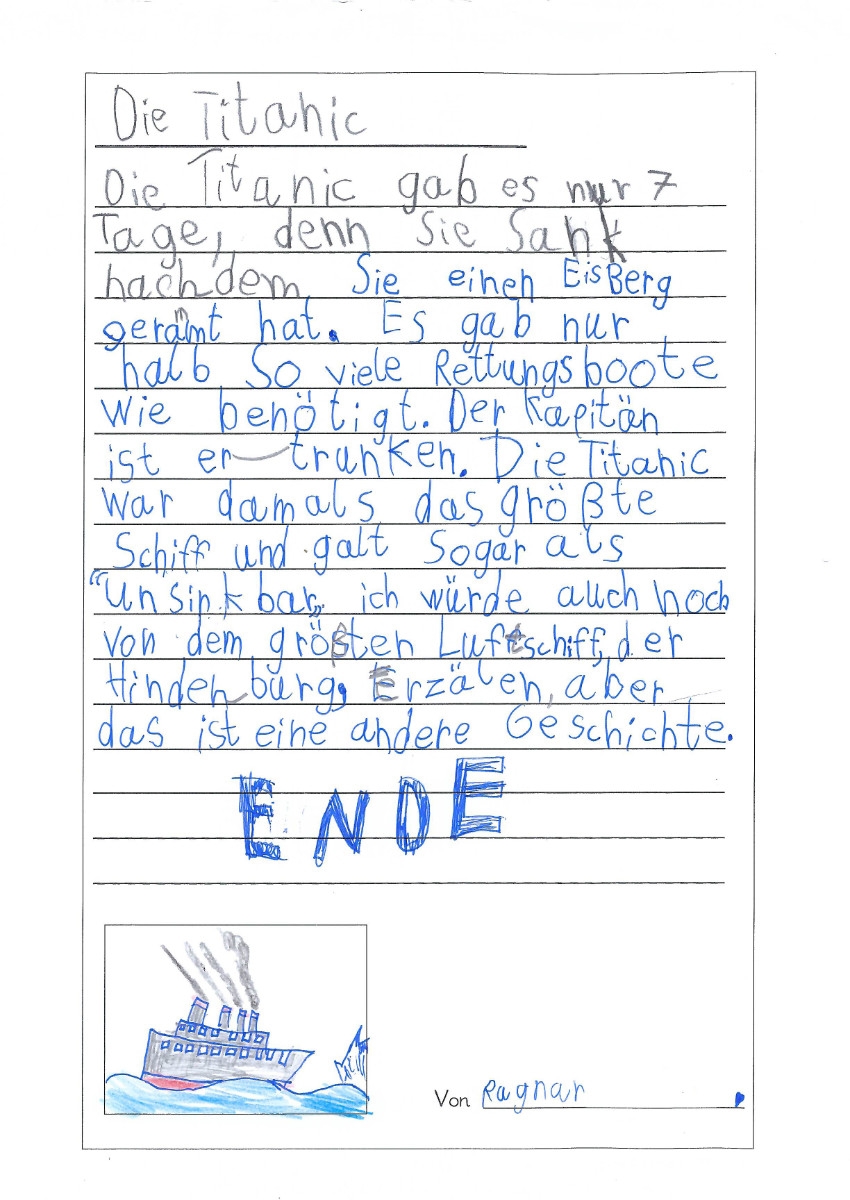 Die Titanic
Die Titanic gab es nur 7
Tage, denn Sie Sank
nachdem Sie einen EisBerg
gerämt hat. Es gab nur
halb So viele Rettungsboote
Wie benötigt. Der Kapitän
ist ertrunken. Die Titanic
war damals das größte
Schiff und galt Sogar als
"Unsinkbar" ich würde auch noch
von dem größten Luftschiff, der
Hindenburg, Erzälen, aber
das ist eine andere Geschichte.
ENDE
Von Ragnar